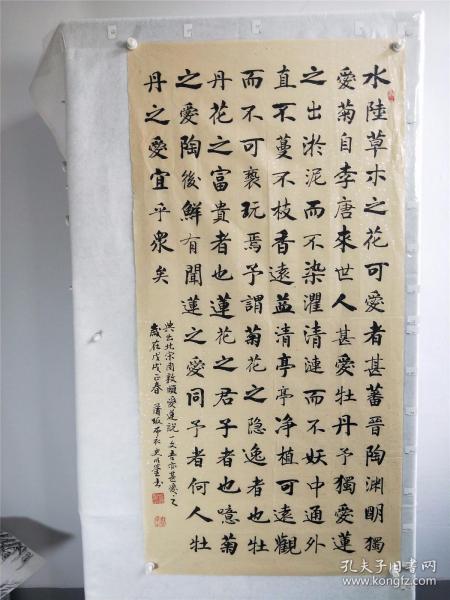 水陸草木之花可愛者甚蕃晉陶渊明獨
愛菊自李唐來世人甚愛牡丹予獨愛蓮
之出淤泥而不染濯清漣而不妖中通外
直不蔓不枝香遠益清亭亭净植可遠觀
而不可褻玩焉予謂菊花之隐逸者也牡
丹花之富貴者也蓮花之君子者也噫菊
之愛陶後鮮有聞蓮之愛同予者何人牡
丹之愛宜乎衆矣
典出北宋周敦頤愛蓮説一文吾亦甚愛之
歲在戊戌春 蒲坂布衣 書
孔夫子旧书网
www.kongfz.com